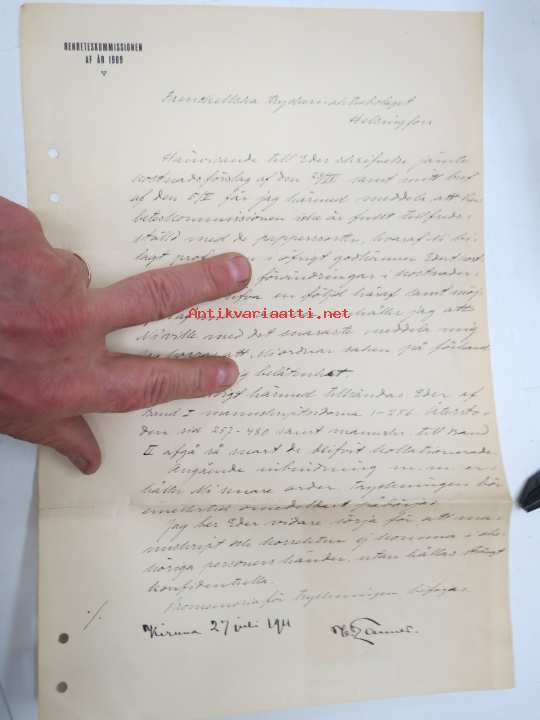 RENBETESKOMMISSIONEN
AF ÅR 1909
Frenckellska tryckeriaktiebolaget
Helsingfors
Hänvisande till Eder skrifvelse jämte
kostnadsförslag af den samt mitt bref
af den får jag härmed meddela att Ren-
beteskommissionen icke är fullt tillfreds-
ställd med de papperssorter, hvaraf Ni bi-
lagt prof i öfrigt godkänner Edert kost
förändringar i kostnader
en följd häraf samt
Antikvariaatti.net
håller jag att
Ni ville med det snaraste meddela mig
att Ni ordnar saken på
belåtenhet
härmed tillsändas Eder af
Band I manuskriptsidorna 1-256. Återsto-
den sid 257-480 samt manuskr. till Band
II afgå så snart de blifvit kollationerade
Angående inbindning m.m. er-
håller Ni senare order. Tryckningen bör
emellertid omedelbart påbörjas.
Jag ber Eder vidare sörja för att ma-
nuskript och korrektur ej komma i obe-
höriga personers händer, utan hållas strängt
konfidentiella.
Promemoria för tryckningen bifogas
Kiruna 27 juli 1911